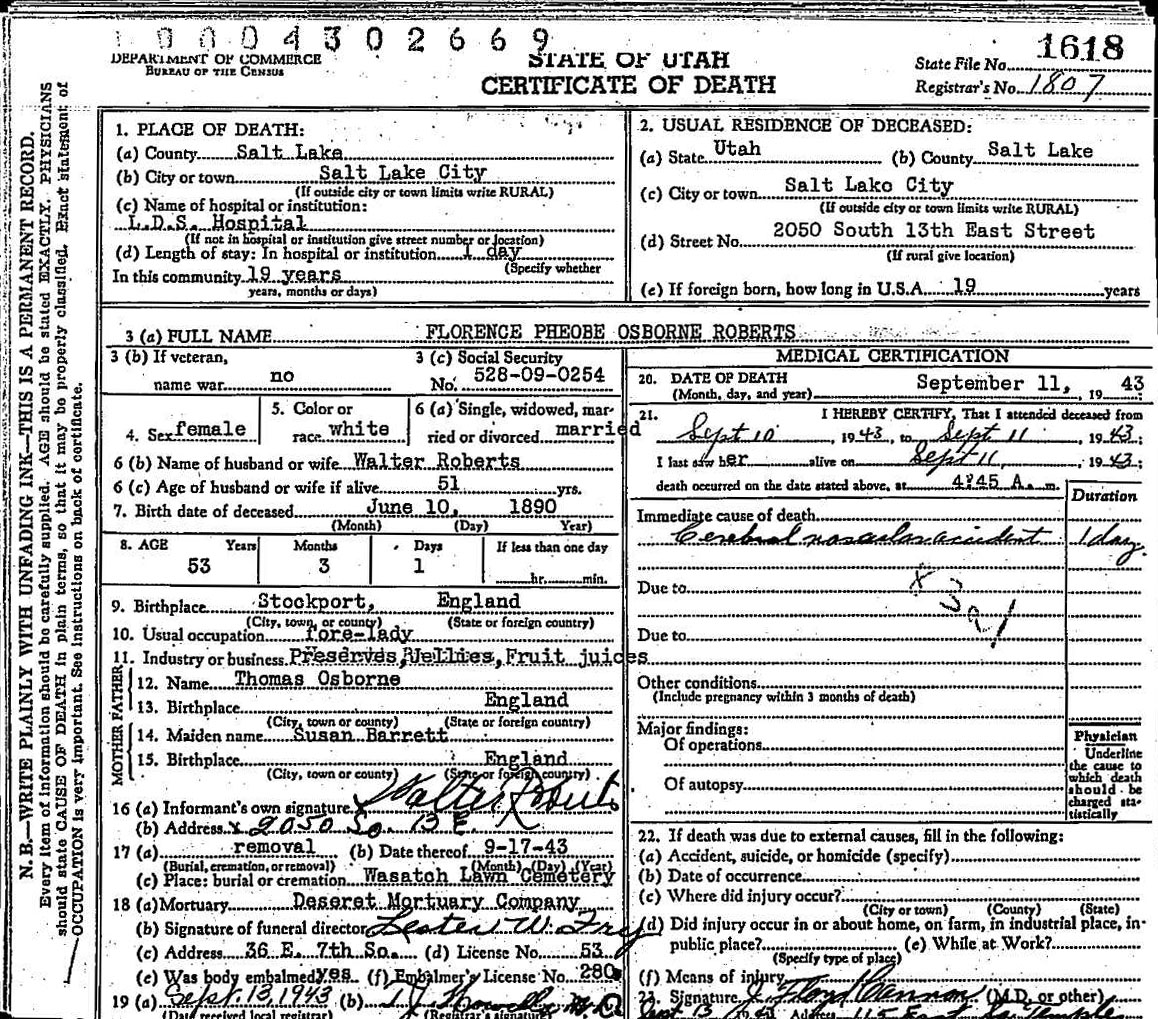 1 0 0 0 4 3 0 2 6 6 9
DEPARTMENT OF COMMERCE
BUREAU OF THE CENSUS
STATE OF UTAH
CERTIFICATE OF DEATH
State File No. 1618
Registrar's No. 1807
N. B.—WRITE PLAINLY WITH UNFADING INK—THIS IS A PERMANENT RECORD.
Every item of information should be carefully supplied. AGE should be stated EXACTLY. PHYSICIANS
should state CAUSE OF DEATH in plain terms, so that it may be properly classified. Exact statement of
OCCUPATION is very important. See instructions on back of certificate.
1. PLACE OF DEATH:
(a) County Salt Lake
(b) City or town Salt Lake City
(If outside city or town limits write RURAL)
(c) Name of hospital or institution:
L.D.S. Hospital
(If not in hospital or institution give street number or location)
(d) Length of stay: In hospital or institution 1 day
(Specify whether
In this community 19 years
years, months or days)
2. USUAL RESIDENCE OF DECEASED:
(a) State Utah (b) County Salt Lake
(c) City or town Salt Lake City
(If outside city or town limits write RURAL)
(d) Street No. 2050 South 13th East Street
(If rural give location)
(e) If foreign born, how long in U.S.A. 19 years
3 (a) FULL NAME FLORENCE PHEOBE OSBORNE ROBERTS
3 (b) If veteran, 3 (c) Social Security
name war no No. 528-09-0254
4. Sex female 5. Color or race white 6 (a) Single, widowed, married or divorced married
6 (b) Name of husband or wife Walter Roberts
6 (c) Age of husband or wife if alive 51 yrs.
7. Birth date of deceased June 10, 1890
(Month) (Day) Year)
8. AGE Years Months Days If less than one day
53 3 1 hr. min.
9. Birthplace Stockport, England
(City, town, or county) (State or foreign country)
10. Usual occupation fore-lady
11. Industry or business Preserves, Jellies, Fruit juices
FATHER
12. Name Thomas Osborne
13. Birthplace England
(City, town or county) (State or foreign country)
MOTHER
14. Maiden name Susan Barrett
15. Birthplace England
(City, town or county) (State or foreign country)
16 (a) Informant's own signature x Walter Roberts
(b) Address x 2050 So. 13 E.
17 (a) removal (b) Date thereof 9-17-43
(Burial, cremation, or removal) (Month) (Day) (Year)
(c) Place: burial or cremation Wasatch Lawn Cemetery
18 (a) Mortuary Deseret Mortuary Company
(b) Signature of funeral director Lester W. Fry
(c) Address 36 E. 7th So. (d) License No. 53
(e) Was body embalmed yes (f) Embalmer's License No. 280
19 (a) Sept. 13, 1943 (b)
(Date received local registrar) (Registrar's signature)
MEDICAL CERTIFICATION
20. DATE OF DEATH September 11, 1943
(Month, day, and year)
21. I HEREBY CERTIFY, That I attended deceased from
Sept 10, 1943, to Sept 11, 1943;
I last saw her alive on Sept 11, 1943;
death occurred on the date stated above, at 4:45 A. m.
Duration
Immediate cause of death
Cerebral vascular accident 1 day.
Due to
Due to
Other conditions
(Include pregnancy within 3 months of death)
Major findings:
Of operations
Of autopsy
Physician
Underline
the cause to
which death
should be
charged sta-
tistically
22. If death was due to external causes, fill in the following:
(a) Accident, suicide, or homicide (specify)
(b) Date of occurrence
(c) Where did injury occur?
(City or town) (County) (State)
(d) Did injury occur in or about home, on farm, in industrial place, in
public place? (e) While at Work?
(Specify type of place)
(f) Means of injury
23. Signature J. Floyd Cannon (M.D. or other)
Sept 13 1943 Address 115 East So. Temple